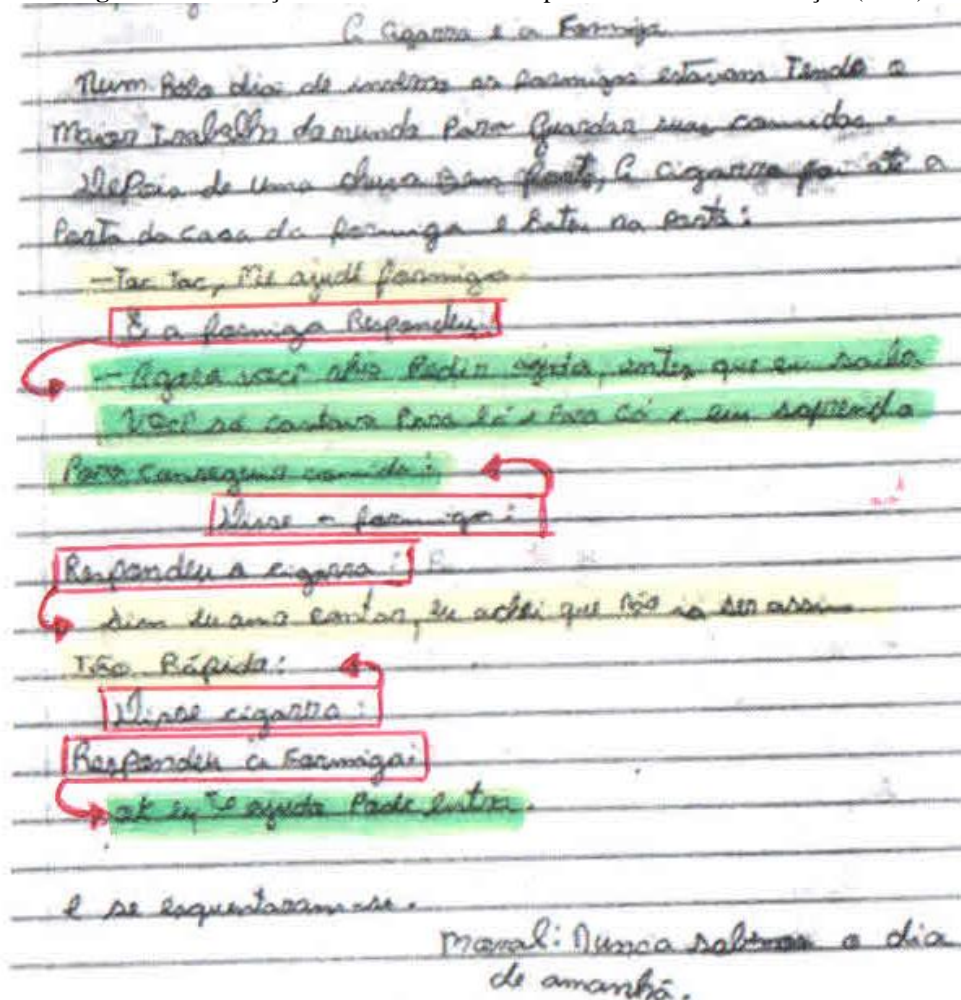 A cigarra e a Formiga
Num belo dia de inverno as formigas estavam Tendo o
Maior Trabalho do mundo Para Guardar suas comidas.
Depois de uma chuva bem forte, A cigarra foi até a
Porta da casa da formiga e bateu na Porta:
-Toc Toc, Me ajude formiga
E a formiga Respondeu:
- Agora você Pedir ajuda, antes que eu saiba
Você só cantava Para lá e Para cá e eu
Para comida:
Disse a formiga:
Respondeu a cigarra:
sim eu amo cantar, eu achei que não ia ser assim
Tão Rápido:
Disse cigarra:
Respondeu a Formiga:
ok eu Te ajudo Pode entra.
e se esquentaram-se.
Moral: Nunca sabemos o dia
de amanhã.